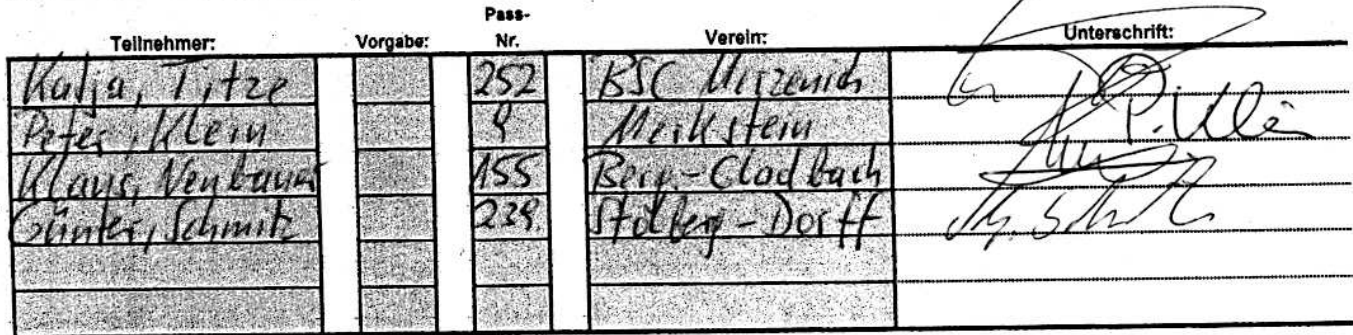 Teilnehmer: Vorgabe: Pass-Nr. Verein: Unterschrift:
Katja, Titze 252 BSC Merzenich
Peter, Klein 9 Merkstein P. Klein
Klaus, Neubauer 155 Berg.-Gladbach
Günter, Schmitz 239. Stolberg-Dorff